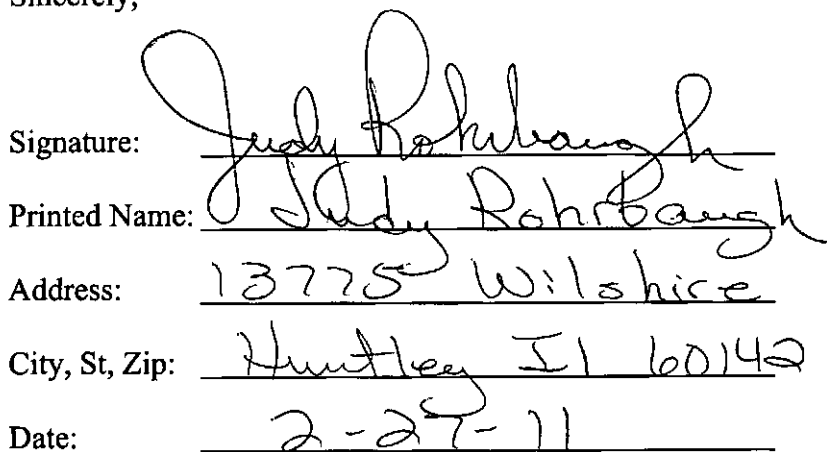 Sincerely,
Signature: Judy Rohrbaugh
Printed Name: Judy Rohrbaugh
Address: 13775 Wilshire
City, St, Zip: Huntley Il 60142
Date: 2-27-11